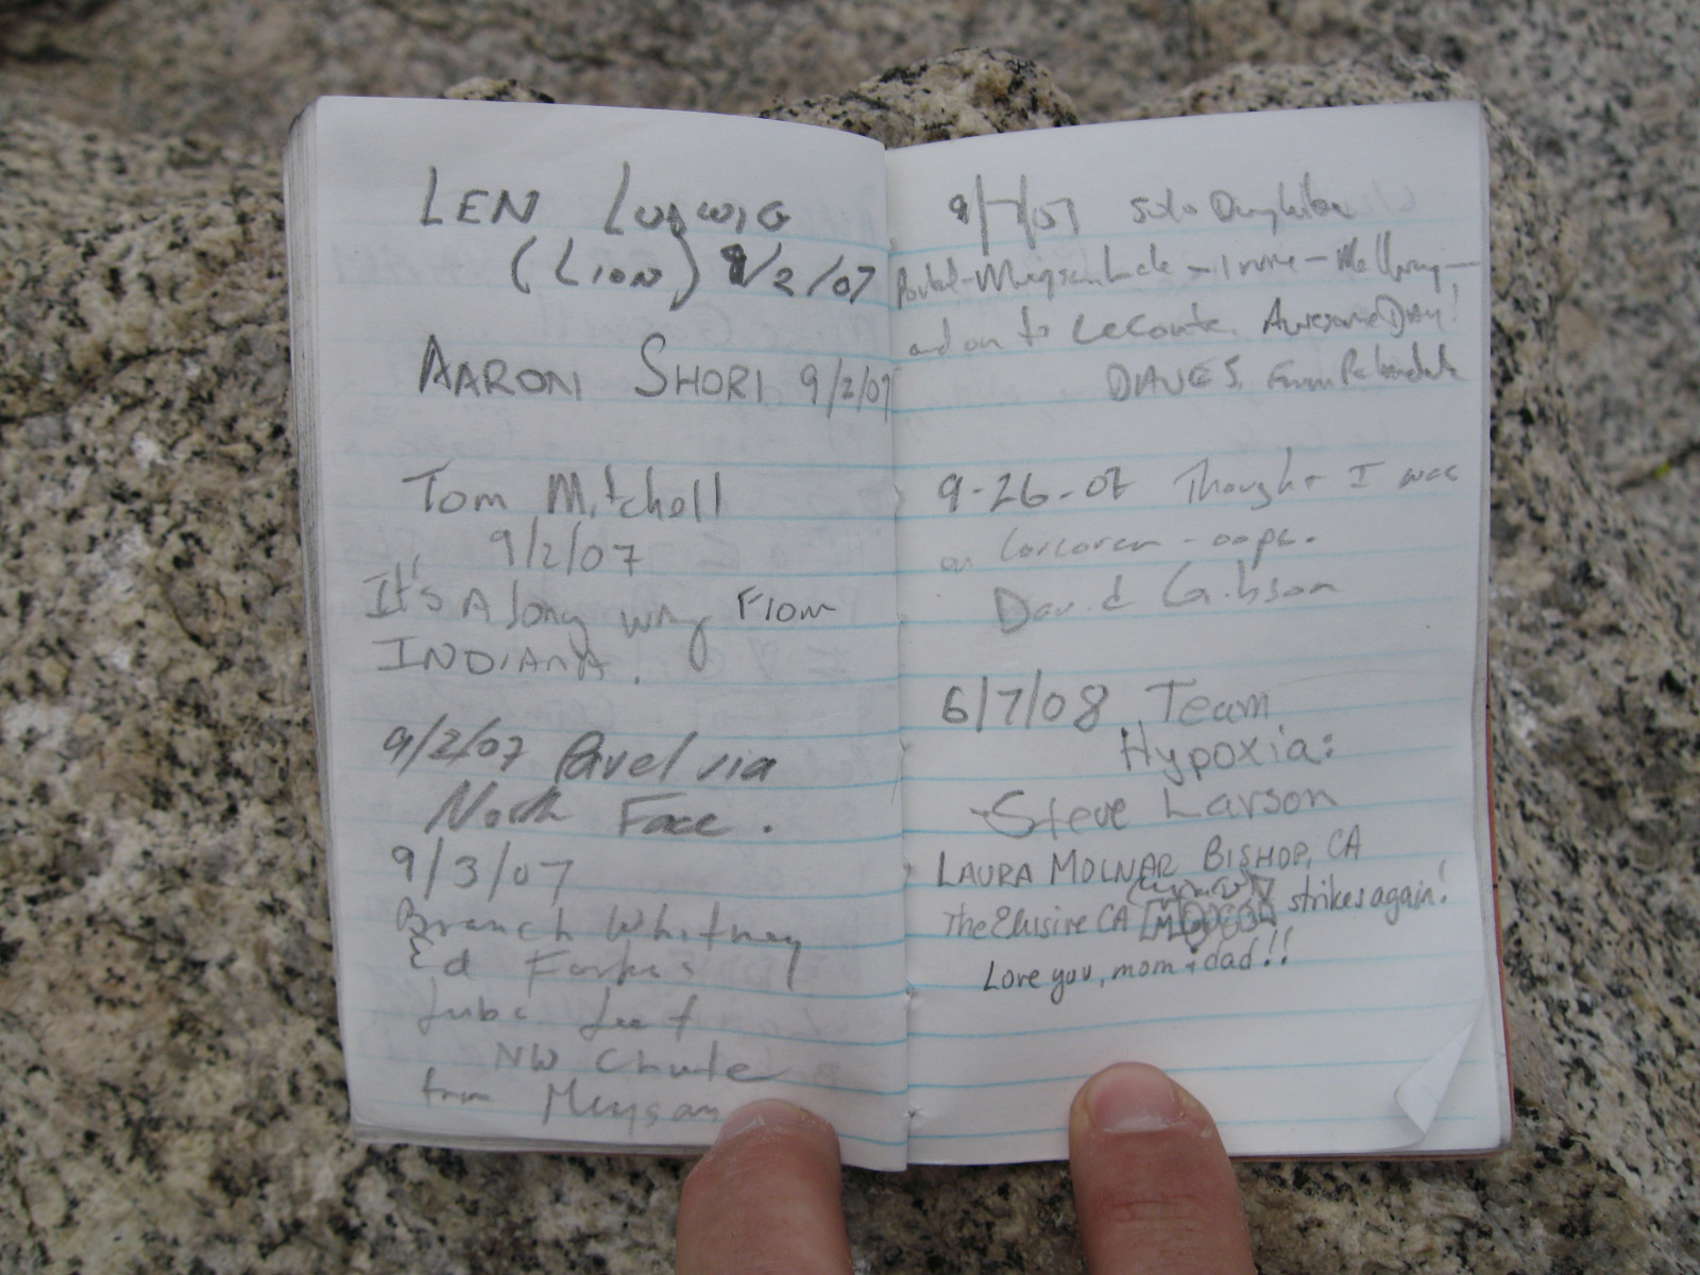 LEN LUDWIG
(LION) 9/2/07
AARON SHORI 9/2/07
Tom Mitchell
9/2/07
It's A long way From
INDIANA.
9/2/07 Pavel via
North Face.
9/3/07
Branch Whitney
Ed Forkes
Luba Leef
NW Chute
from Meysan
9/7/07 Solo Dayhike
Portal-Meysan Lake - Irvine - Mallory -
and on to LeConte. Awesome Day!
DAVE S. From Palmdale
9-26-07 Thought I was
on Corcoran - oops.
David Gibson
6/7/08 Team
Hypoxia:
-Steve Larson
LAURA MOLNAR BISHOP, CA
The Elusive CA strikes again!
Love you, mom & dad!!